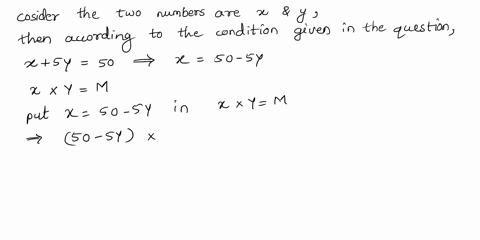 cosider the two numbers are x & y,
then according to the condition given in the question,
x+5y = 50 ⟹ x = 50-5y
x × y = M
put x = 50-5y in x × y = M
⟹ (50-5y) ×